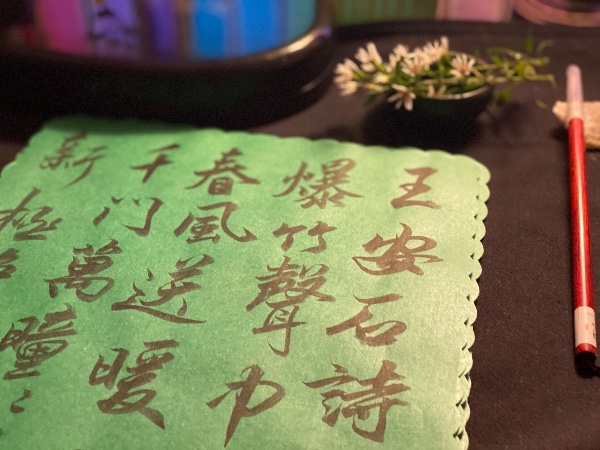 王安石詩
爆竹聲中
春風送暖
千門萬曈
新桃